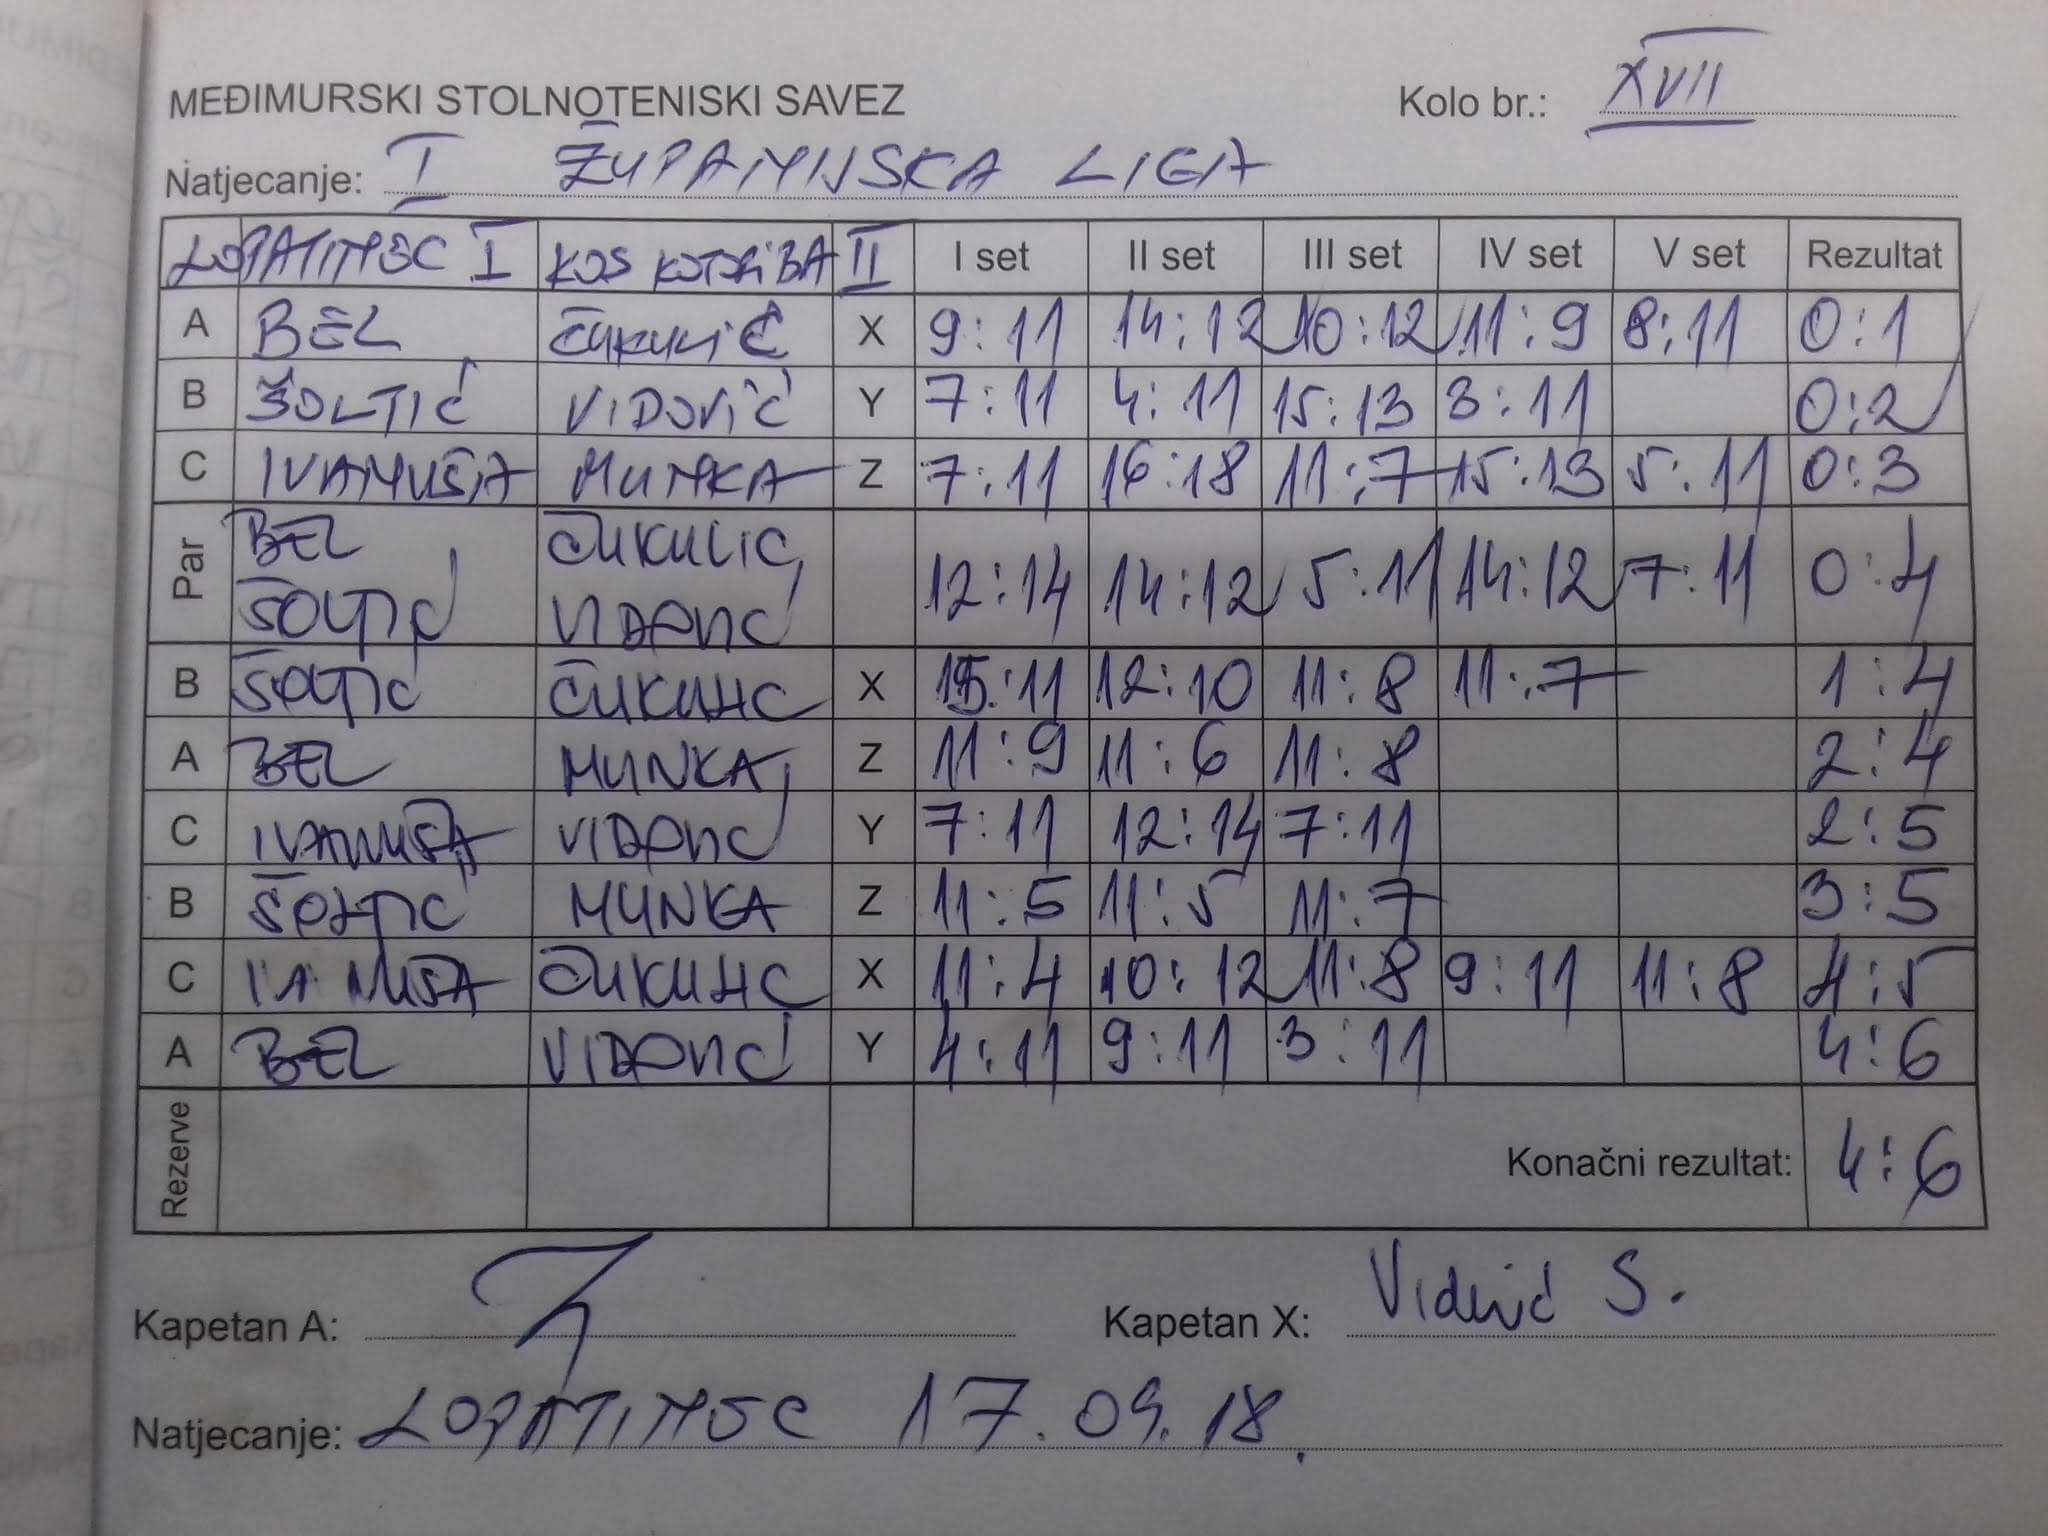 MEĐIMURSKI STOLNOTENISKI SAVEZ Kolo br.: XVII
Natjecanje: I ŽUPANIJSKA LIGA
LOPATINEC I KOS KOTORIBA II I set II set III set IV set V set Rezultat
A BEL ČUKULIĆ X 9:11 14:12 10:12 11:9 8:11 0:1
B ŠOLTIĆ VIDOVIĆ Y 7:11 4:11 15:13 3:11 0:2
C IVANUŠA MUNKA Z 7:11 16:18 11:7 15:13 5:11 0:3
Par BEL ČUKULIĆ
ŠOLTIĆ VIDOVIĆ 12:14 14:12 5:11 14:12 7:11 0:4
B ŠOLTIĆ ČUKULIĆ X :11 12:10 11:8 11:7 1:4
A BEL MUNKA Z 11:9 11:6 11:8 2:4
C IVANUŠA VIDOVIĆ Y 7:11 12:14 7:11 2:5
B ŠOLTIĆ MUNKA Z 11:5 11:5 11:7 3:5
C IVANUŠA ČUKULIĆ X 11:4 10:12 11:8 9:11 11:8 4:5
A BEL VIDOVIĆ Y 4:11 9:11 3:11 4:6
Rezerve Konačni rezultat: 4:6
Kapetan A: Kapetan X: Vidović S.
Natjecanje: LOPATINEC 17.09.18.